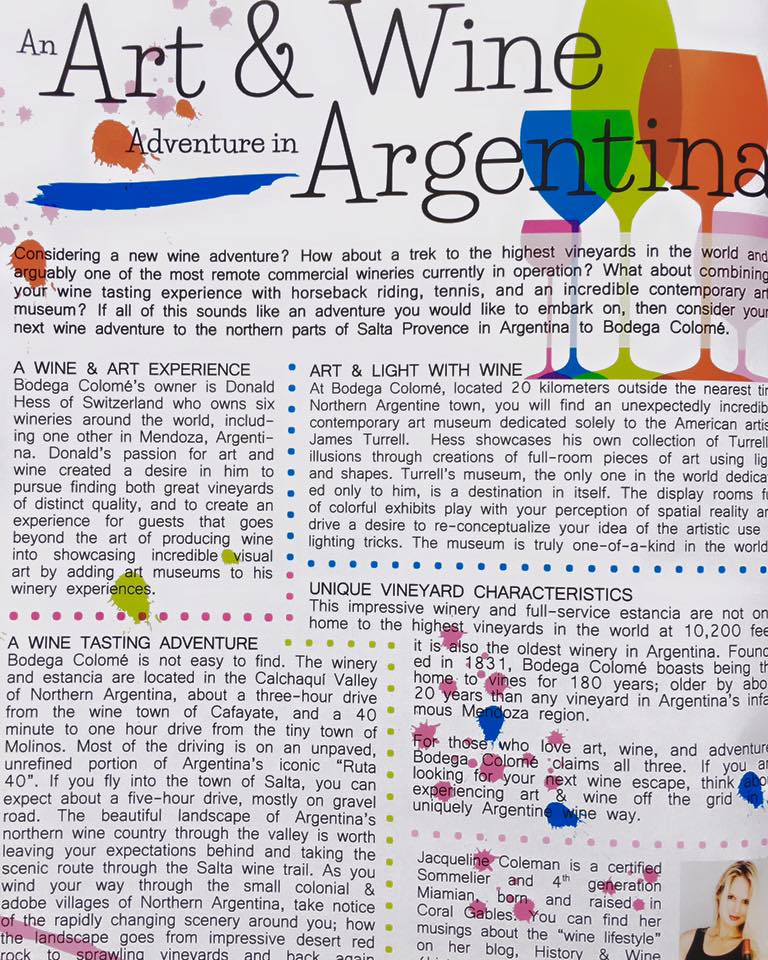 An Art & Wine
Adventure in Argentina
Considering a new wine adventure? How about a trek to the highest vineyards in the world and
arguably one of the most remote commercial wineries currently in operation? What about combining
your wine tasting experience with horseback riding, tennis, and an incredible contemporary art
museum? If all of this sounds like an adventure you would like to embark on, then consider your
next wine adventure to the northern parts of Salta Provence in Argentina to Bodega Colomé.
A WINE & ART EXPERIENCE
Bodega Colomé's owner is Donald
Hess of Switzerland who owns six
wineries around the world, includ-
ing one other in Mendoza, Argenti-
na. Donald's passion for art and
wine created a desire in him to
pursue finding both great vineyards
of distinct quality, and to create an
experience for guests that goes
beyond the art of producing wine
into showcasing incredible visual
art by adding art museums to his
winery experiences.
ART & LIGHT WITH WINE
At Bodega Colomé, located 20 kilometers outside the nearest
Northern Argentine town, you will find an unexpectedly
contemporary art museum dedicated solely to the American
James Turrell. Hess showcases his own collection of Turrell
illusions through creations of full-room pieces of art using
and shapes. Turrell's museum, the only one in the world
ed only to him, is a destination in itself. The display rooms
of colorful exhibits play with your perception of spatial reality
drive a desire to re-conceptualize your idea of the artistic use
lighting tricks. The museum is truly one-of-a-kind in the world
UNIQUE VINEYARD CHARACTERISTICS
This impressive winery and full-service estancia are not
home to the highest vineyards in the world at 10,200
it is also the oldest winery in Argentina.
ed in 1831, Bodega Colomé boasts being
home to vines for 180 years; older by
20 years than any vineyard in Argentina's
mous Mendoza region.
For those who love art, wine, and
Bodega Colomé claims all three. If you
looking for your next wine escape, think
experiencing art & wine off the grid in
uniquely Argentine wine way.
A WINE TASTING ADVENTURE
Bodega Colomé is not easy to find. The winery
and estancia are located in the Calchaquí Valley
of Northern Argentina, about a three-hour drive
from the wine town of Cafayate, and a 40
minute to one hour drive from the tiny town of
Molinos. Most of the driving is on an unpaved,
unrefined portion of Argentina's iconic "Ruta
40". If you fly into the town of Salta, you can
expect about a five-hour drive, mostly on gravel
road. The beautiful landscape of Argentina's
northern wine country through the valley is worth
leaving your expectations behind and taking the
scenic route through the Salta wine trail. As you
wind your way through the small colonial &
adobe villages of Northern Argentina, take notice
of the rapidly changing scenery around you; how
the landscape goes from impressive desert red
rock to sprawling vineyards and back again
Jacqueline Coleman is a certified
Sommelier and 4th generation
Miamian, born and raised in
Coral Gables. You can find her
musings about the "wine lifestyle"
on her blog, History & Wine